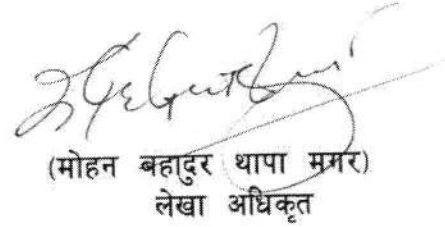 (मोहन बहादुर थापा मगर)
लेखा अधिकृत